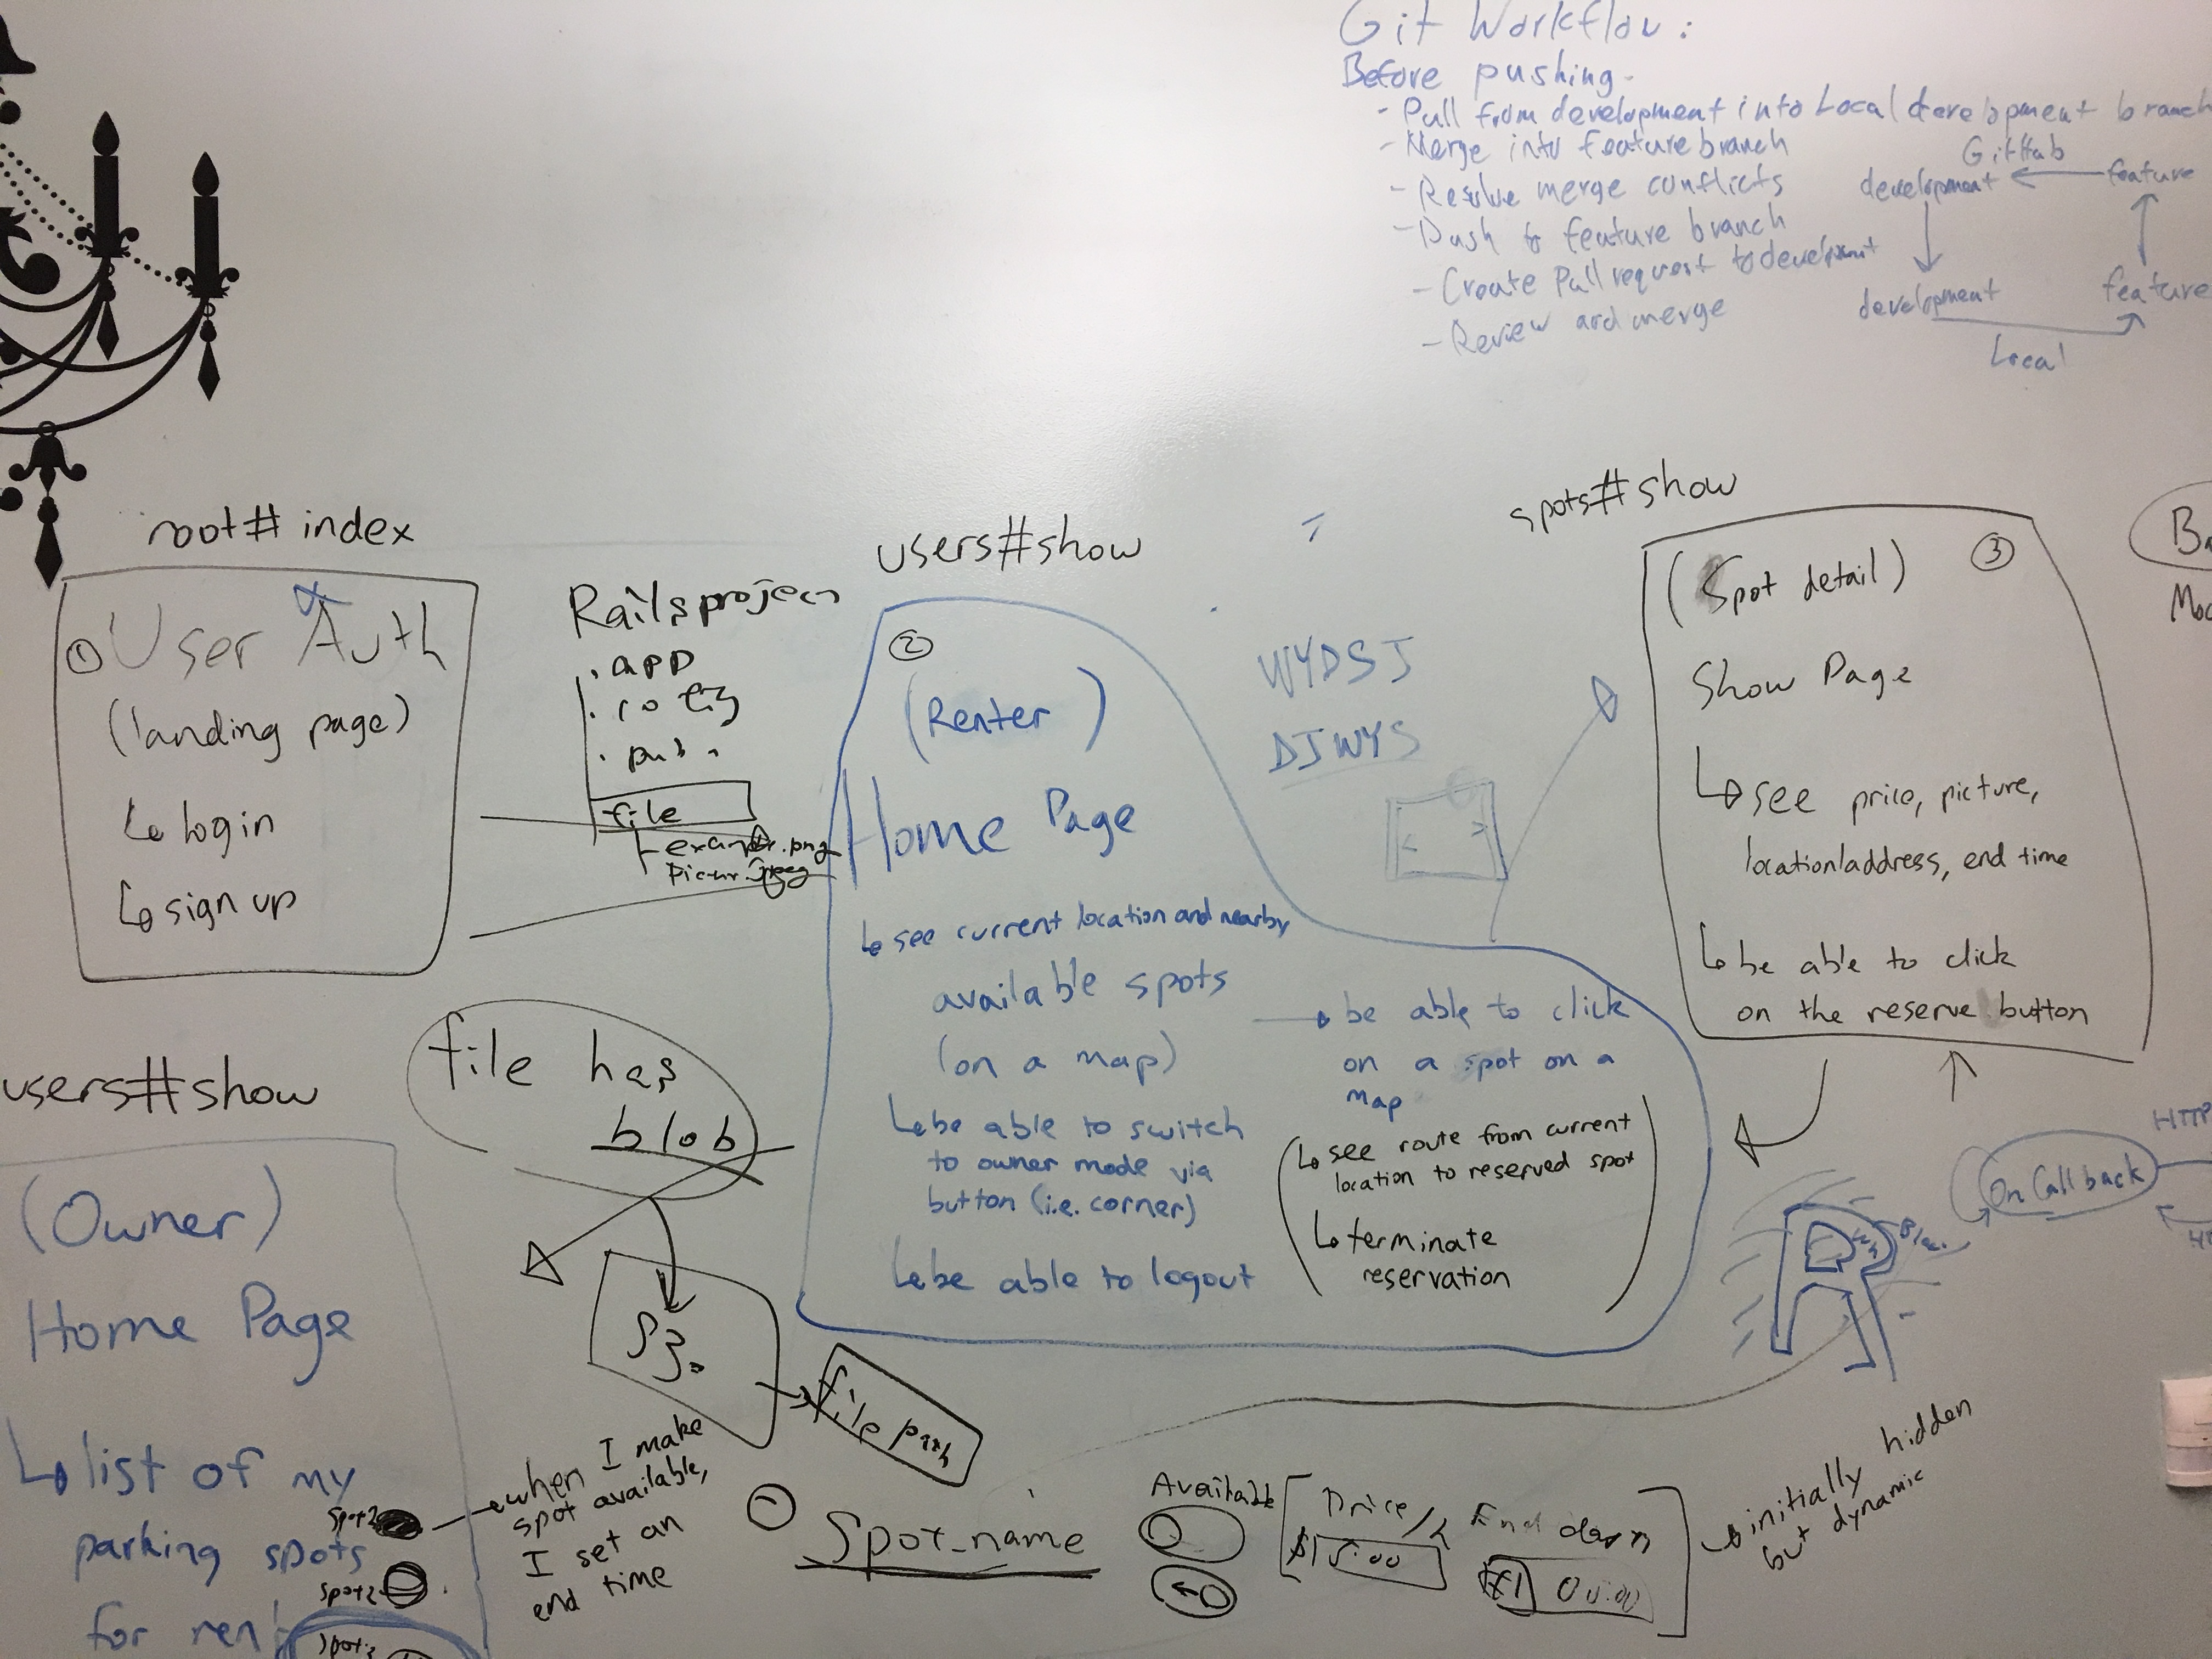 Git Workflow:
Before pushing-
- Pull from development into Local development branch
- Merge into feature branch
- Resolve merge conflicts
- Push to feature branch
- Create Pull request to development
- Review and merge
GitHub
development
feature
development
feature
Local
root# index
① User Auth
(landing page)
login
sign up
Rails project
. app
file
.png
users#show
②
(Renter)
Home Page
see current location and nearby
available spots
(on a map)
be able to switch
to owner mode via
button (i.e. corner)
be able to logout
be able to click
on a spot on a
map
see route from current
location to reserved spot
terminate
reservation
WYDSJ
DJWYS
spots#show
(Spot detail) ③
Show Page
see price, picture,
location/address, end time
be able to click
on the reserve button
On Callback
HTTP
file has
blob
file path
users#show
(Owner)
Home Page
list of my
parking spots
for ren
Spot2
when I make
spot available,
I set an
end time
Spot_name
Available
Price/h
End
initially hidden
but dynamic